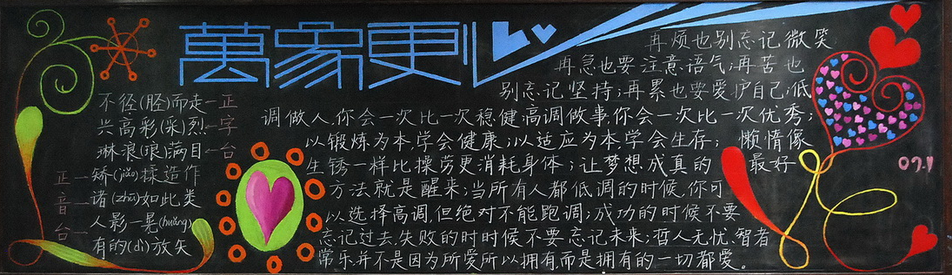 萬象更
再烦也别忘记微笑
再急也要注意语气;再苦也
别忘记坚持;再累也要爱护自己;低
调做人,你会一次比一次稳健,高调做事,你会一次比一次优秀;
以锻炼为本,学会健康;以适应为本,学会生存;懒惰像
生锈一样比操劳更消耗身体;让梦想成真的最好
方法就是醒来;当所有人都低调的时候,你可
以选择高调,但绝对不能跑调;成功的时候不要
忘记过去,失败的时时候不要忘记未来;哲人无忧,智者
常乐,并不是因为所爱所以拥有,而是拥有的一切都爱。
不径(胫)而走
兴高彩(采)烈
琳浪(琅)满目
正字台
矫(jiǎo)揉造作
诸(zhū)如此类
人影一晃(huǎng)
有的(dì)放矢
正音台
09.1